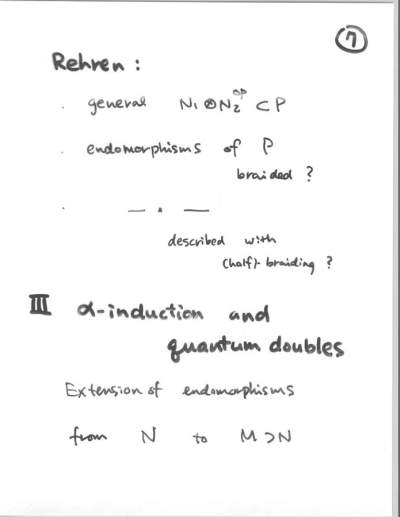 ⑦
Rehren :
· general N₁⊗N₂ᵒᵖ ⊂ P
· endomorphisms of P
braided ?
· — · —
described with
(half)-braiding ?
III α-induction and
quantum doubles
Extension of endomorphisms
from N to M⊃N